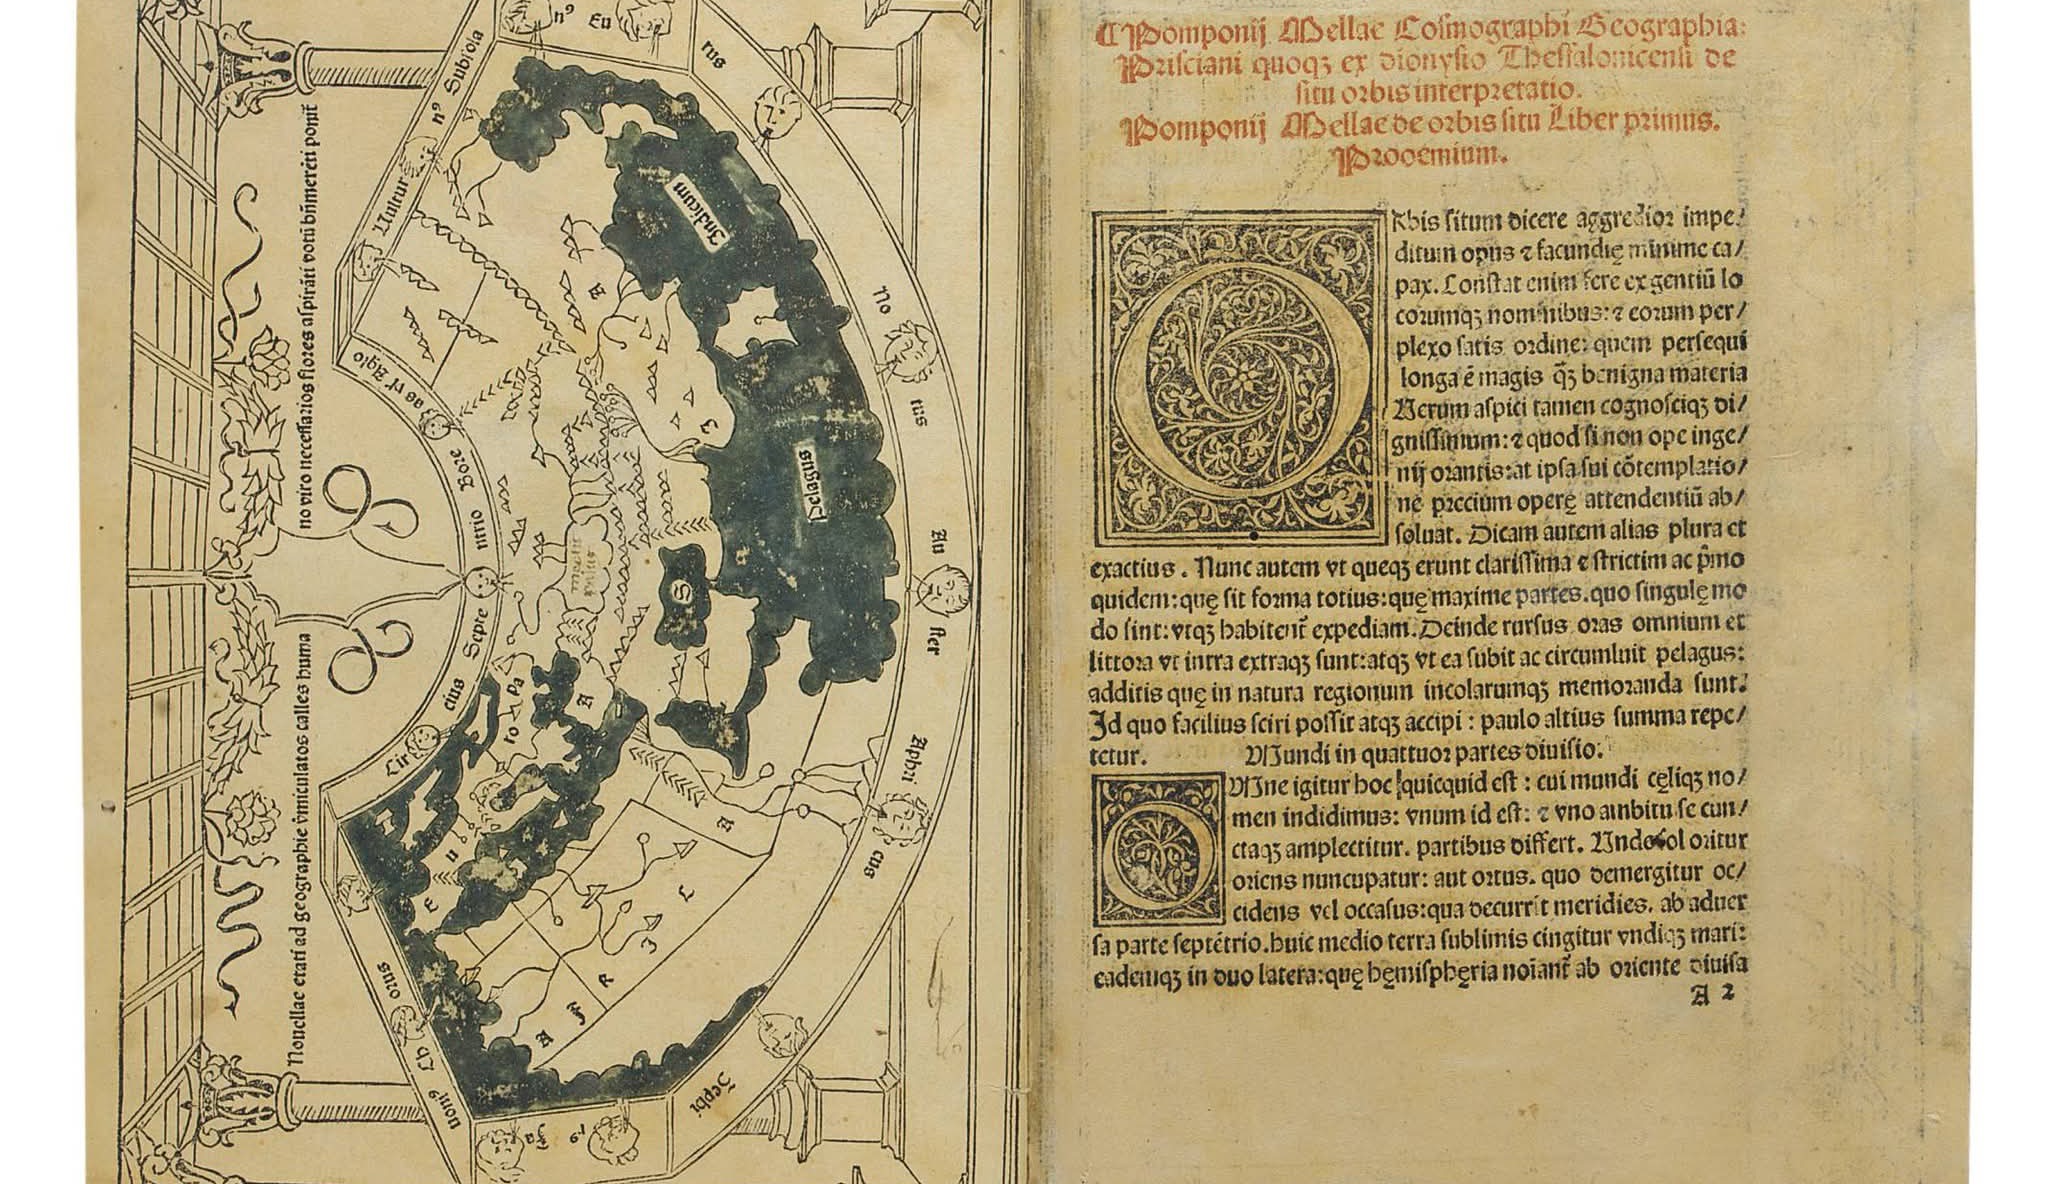 Nouellae etati ad geographie v̄miculatos calles huma
no viro necessarios flores aspirāti votū bn̄merēti ponit̄
n⁹ Subsola
n⁹ Eu
rus
Vultur
No
tus
Au
ster
Aphri
cus
Zephi
r⁹
Fa
uoni⁹
Ch
orus
Cir
cius
Septe
ntrio
Bore
as vl' Aqlo
Indicum
Pelagus
A
S
A
I
A
Eu
ro
pa
A
F
R
I
C
A
¶ Pomponij Mellae Cosmographi Geographia:
Prisciani quoqꝫ ex dionysio Thessalonicensi de
situ orbis interpretatio.
Pomponij Mellae de orbis situ Liber primus.
Prooemium.
ORbis situm dicere aggredior impe/
ditum opus ⁊ facundię minime ca/
pax. Constat enim fere ex gentiū lo
corumqꝫ nominibus: ⁊ eorum per/
plexo satis ordine: quem persequi
longa ē magis q̄ꝫ benigna materia
Verum aspici tamen cognosciqꝫ di/
gnissimum: ⁊ quod si non ope inge/
nij orantis: at ipsa sui cōtemplatio/
ne precium operę attendentiū ab/
soluat. Dicam autem alias plura et
exactius. Nunc autem vt queqꝫ erunt clarissima ⁊ strictim ac p̄mo
quidem: quę sit forma totius: quę maxime partes. quo singulę mo
do sint: vtqꝫ habitent̄ expediam. Deinde rursus oras omnium et
littora vt intra extraqꝫ sunt: atqꝫ vt ea subit ac circumluit pelagus:
additis quę in natura regionum incolarumqꝫ memoranda sunt.
Id quo facilius sciri possit atqꝫ accipi: paulo altius summa repe/
tetur. Mundi in quattuor partes diuisio.
OMne igitur hoc quicquid est: cui mundi cęliqꝫ no/
men indidimus: vnum id est: ⁊ vno ambitu se cun/
ctaqꝫ amplectitur. partibus differt. Vnde sol oritur
oriens nuncupatur: aut ortus. quo demergitur oc/
cidens vel occasus: qua decurrit meridies. ab aduer
sa parte septētrio. huic medio terra sublimis cingitur vndiqꝫ mari:
eademqꝫ in duo latera: quę hęmisphęria noīant̄ ab oriente diuisa
A 2